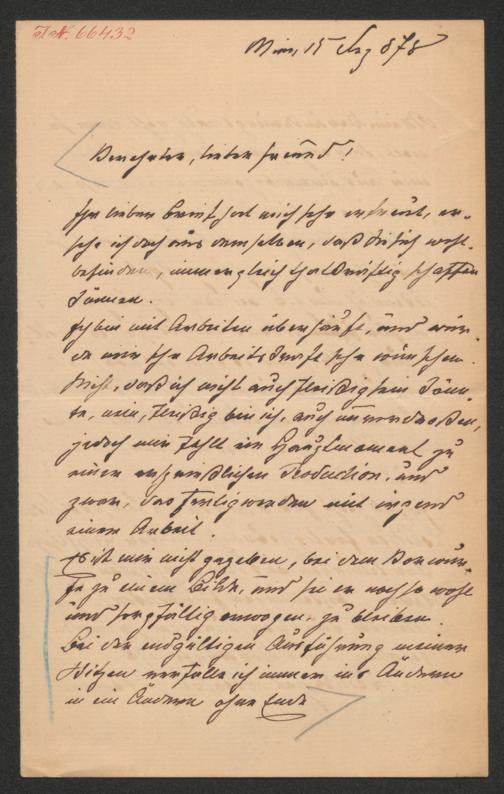 I.N. 66432
Wien, 15 Aug 878
Verehrter, lieber Freund!
Ihr lieber Brief hat mich sehr erfreut, er-
sehe ich doch aus demselben, daß Sie sich wohl
befinden, immer gleich thatkräftig schaffen
können.
Ich bin mit Arbeiten überhäuft, und wür-
de mir Ihre Arbeitskraft sehr wünschen.
Nicht, daß ich nicht auch fleißig sein könn-
te, nein, fleißig bin ich, auch unverdroßen,
jedoch mir fehlt ein Hauptmoment zu
einer ersprießlichen Production, und
zwar, das Fertigwerden mit irgend
einer Arbeit.
Es ist mir nicht gegeben, bei dem Vorwur-
fe zu einem Bilde, und sei er noch so wohl
und sorgfältig erwogen, zu bleiben.
Bei der endgültigen Ausführung meiner
Skizzen verfalle ich immer ins Ändern
in ein Ändern ohne Ende